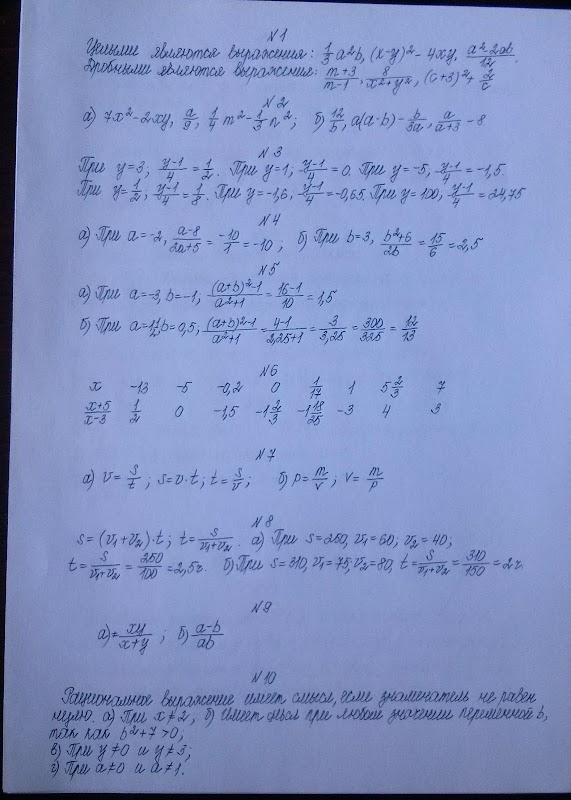 №1
Целыми являются выражения: 1/3 a²b, (x-y)² - 4xy, a²-2ab/12.
Дробными являются выражения: m+3/m-1, 8/x²+y², (c+3)²+ 2/c
№2
а) 7x²-2xy, a/9, 1/4 m²-1/3 n²; б) 12/b, a(a-b)- b/3a, a/a+3 -8
№3
При y=3; y-1/4 = 1/2. При y=1, y-1/4 = 0. При y=-5, y-1/4 = -1,5.
При y=1/2, y-1/4 = 1/8. При y=-1,6, y-1/4 = -0,65. При y=100, y-1/4 = 24,75
№4
а) При a=-2, a-8/2a+5 = -10/1 = -10; б) При b=3, b²+6/2b = 15/6 = 2,5
№5
а) При a=-3, b=-1, (a+b)²-1/a²+1 = 16-1/10 = 1,5
б) При a=1 1/2, b=0,5, (a+b)²-1/a²+1 = 4-1/2,25+1 = 3/3,25 = 300/325 = 12/13
№6
x -13 -5 -0,2 0 1/17 1 5 2/3 7
x+5/x-3 1/2 0 -1,5 -1 2/3 -1 18/25 -3 4 3
№7
а) v= s/t; s=v·t; t= s/v; б) p= m/v; v= m/p
№8
s=(v₁+v₂)·t; t= s/v₁+v₂. а) При s=250, v₁=60; v₂=40;
t= s/v₁+v₂ = 250/100 = 2,5ч. б) При s=310, v₁=75, v₂=80, t= s/v₁+v₂ = 310/150 = 2ч.
№9
а) xy/x+y; б) a-b/ab
№10
Рациональное выражение имеет смысл, если знаменатель не равен
нулю. а) При x≠2, б) Имеет смысл при любом значении переменной b,
так как b²+7>0;
в) При y≠0 и y≠3;
г) При a≠0 и a≠1.